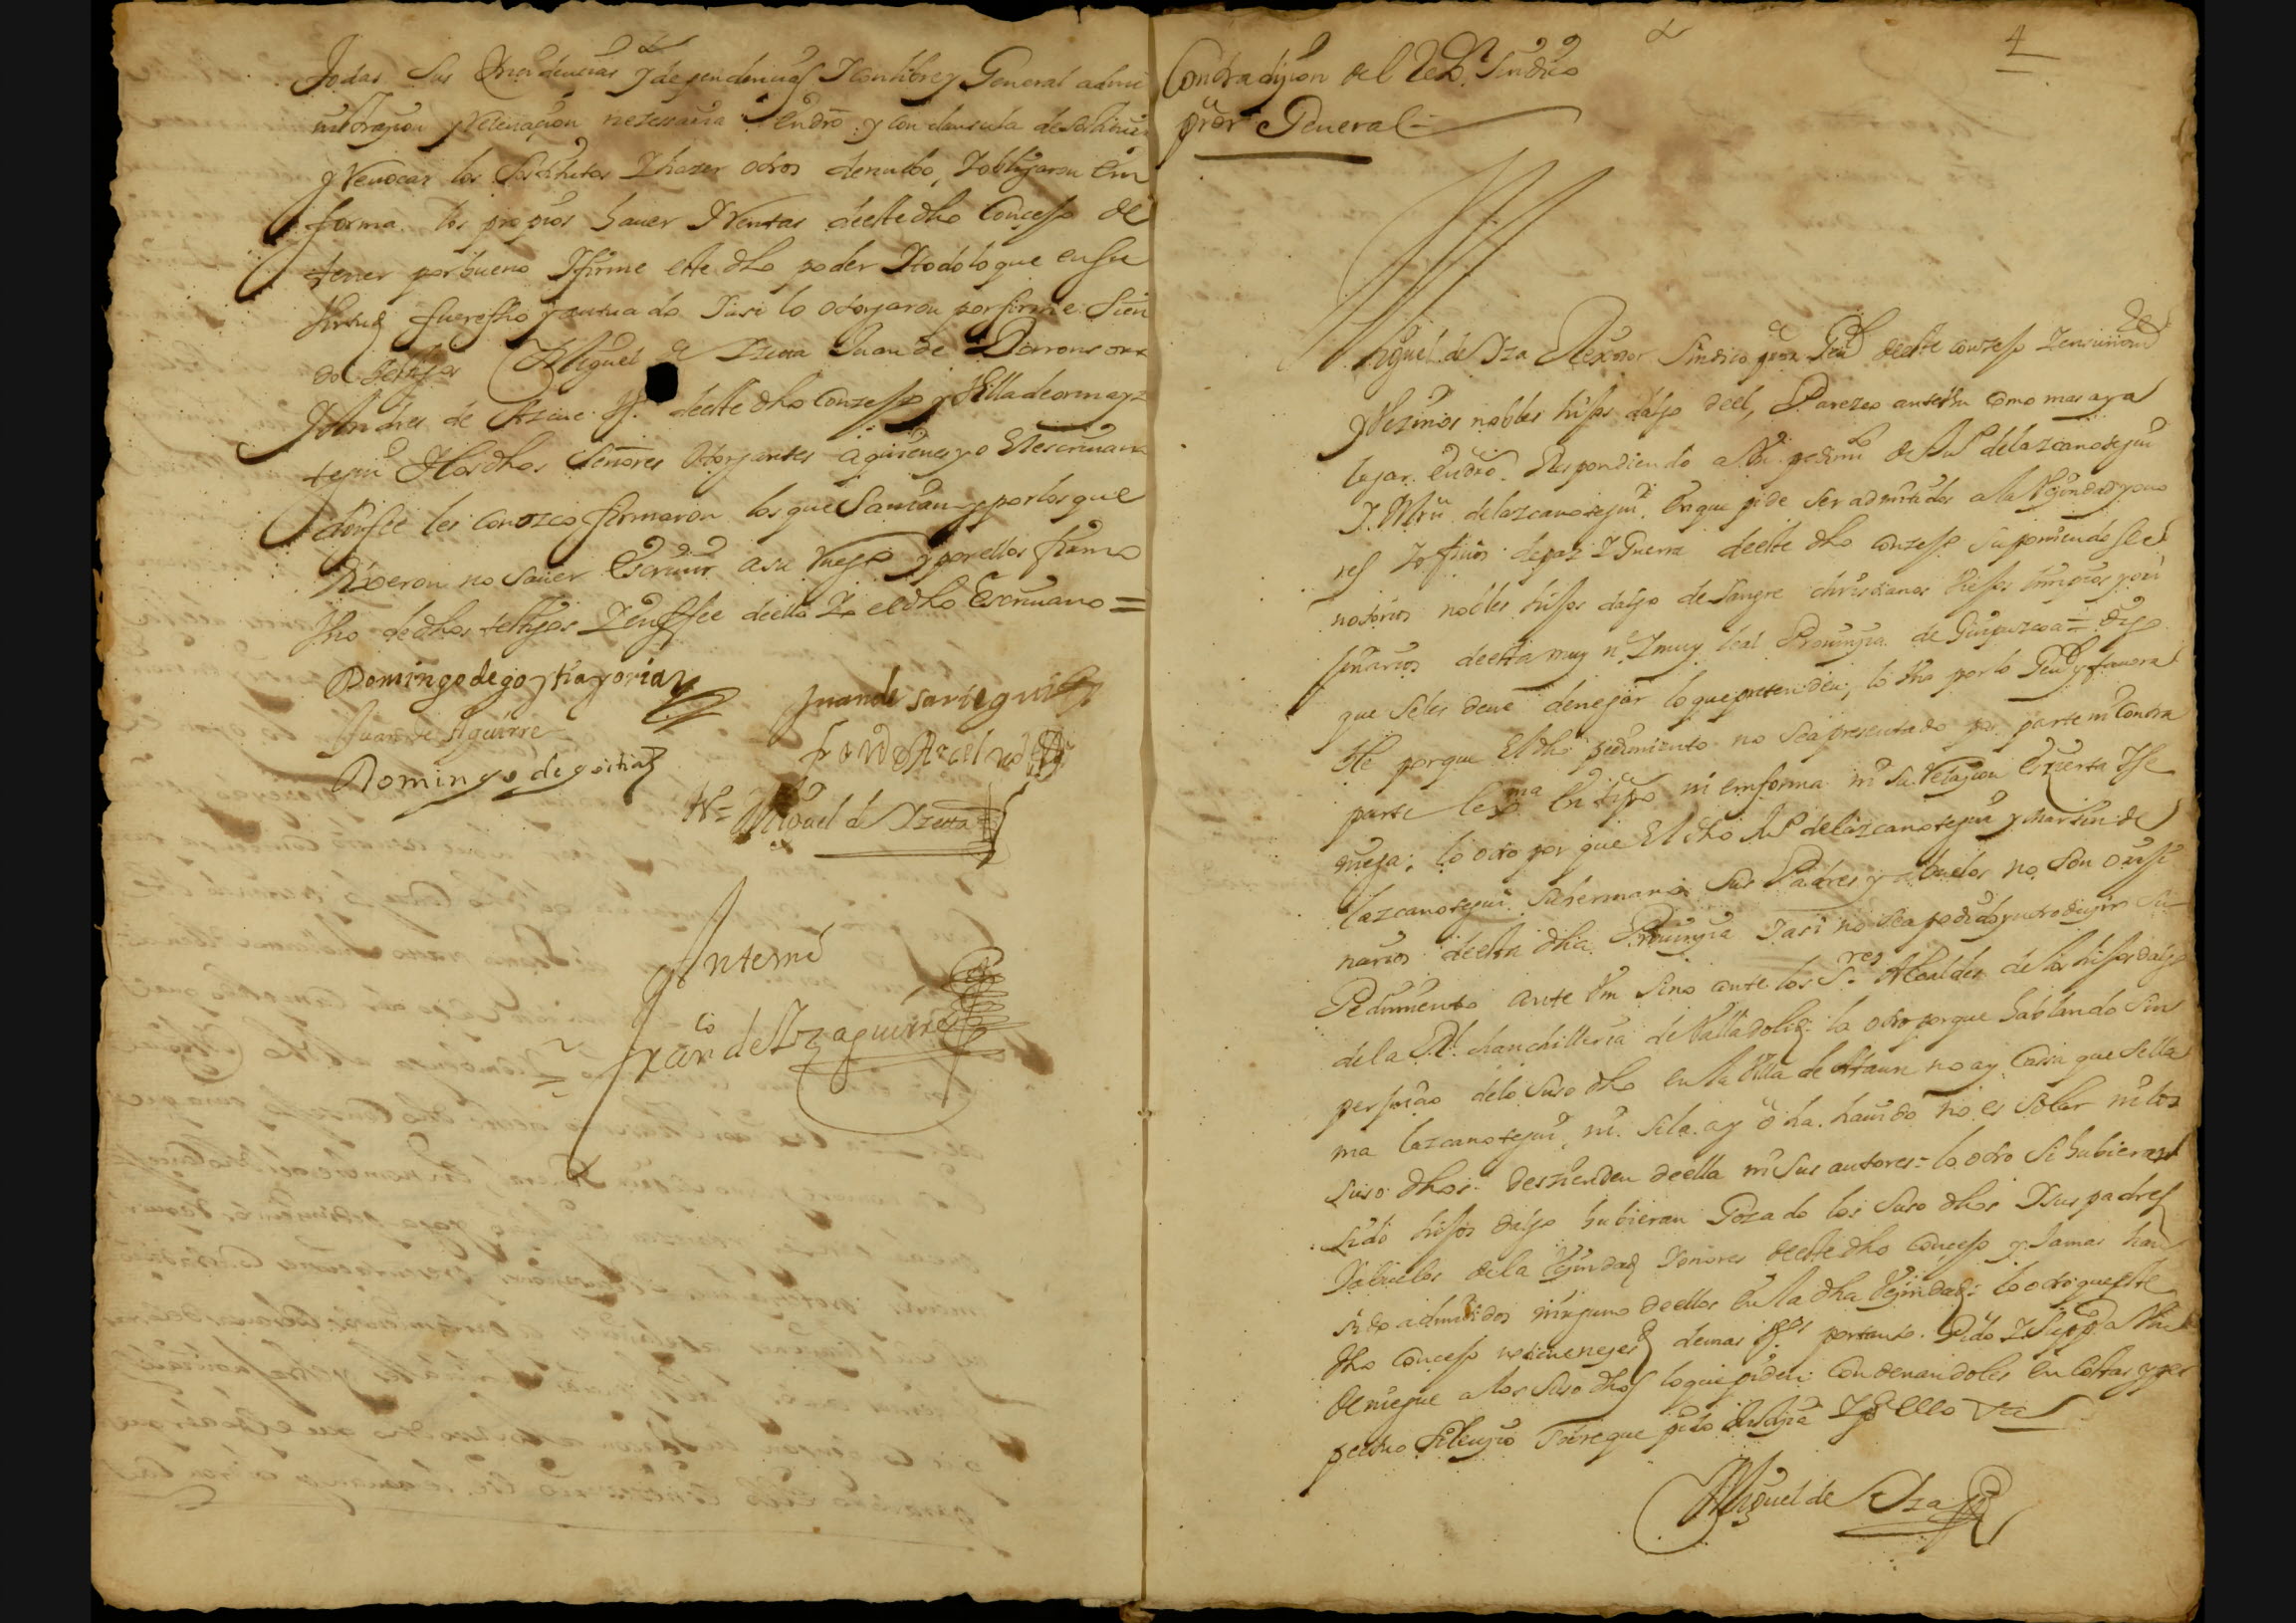 todas sus Ynzidencias y dependencias Y con libre y General admi
nistraçion y Relevaçion nezessaria en dro y con clausula de sostituir
y Revocar los Sostitutos Y hazer otros de nuebo, Y obligaron em
forma los propios haver Y Rentas deeste dho Concejo de
tener por bueno Y firme este dho poder Y todo lo que en su
Virtud fuere fho y autuado Y asi lo otorgaron por firme Sien
do testigos Miguel de Yzetta Juan de Barrons
Y Andres de Azcue Vs deeste dho Conzejo y Villa de ormayz
tegui Y los dhos Señores otorgantes a quienes yo El escrivano
doy fee les conozco firmaron los que Savian y por los que
dixeron no Saver Escrivir a su ruego y por ellos firmo
Vno de dhos testigos Y en ffee deello Yo el dho Escrivano =
Domingo de goytia y oria
Juan de Sarieguin
Juan de Aguirre
Domingo de goitia
tº= Miguel de Yzetta
Antemi
Franco de Yzaguirre
Contradiçion del Rexor Sindico
pror General=
4
Miguel de Yza Rexidor Sindico pror Gen deeste conzejo Y en union de
Vezinos nobles hijos dalgo deel, Parezco ante Vm como mas aya
lugar en dro Respondiendo a Vn pedimto de Ju de lazcanotegui
Y Min de lazcanotegui en que pide ser admitidos a la Vezindad y ono
res Y ofiçios de paz Y Guerra deeste dho conzejo suponiendo ser
notorios nobles hijos dalgo de sangre christianos Viejos limpios y ori
jinarios deesta muy n. Y muy leal Provinçia de Guipuzcoa = digo
que se les deve denegar lo que pretenden, lo Vno por lo Gen y favora
ble porque El dho pedimiento no sea presentado por parte ni contra
parte lexma en tipo ni em forma ni su Relaçion es çierta Y se
niega; lo otro por que El dho Ju de lazcanotegui y Martin de
lazcanotegui su hermano sus Padres y abuelos no son orixi
narios deesta dha Provinçia Y asi no sea podido yntroduzir su
Pedimiento ante Vm sino ante los Sres Alcaldes de los hijos dalgo
de la Rl chanchilleria de Valladolid lo otro porque hablando sin
perjuiçio de lo suso dho en la Villa de Ataun no ay Casa que se lla
ma lazcanotegui ni si la ay ò ha havido no es Solar ni los
suso dhos desçienden deella ni sus autores = lo otro si hubieran
sido hijos dalgo hubieran Gozado los suso dhos Y sus padres
Y abuelos de la Vezindad Y onores deeste dho Concejo y Jamas han
sido admitidos ninguno deellos en la dha Vezindad; lo otro que este
dho Concejo demas Vos portanto Pido Y Supp a Vm
deniegue a los suso dhos lo que piden Condenandoles en Costas y per
petuo Silençio Sobre que pido Justiçia Y p ello etc
Miguel de Yza